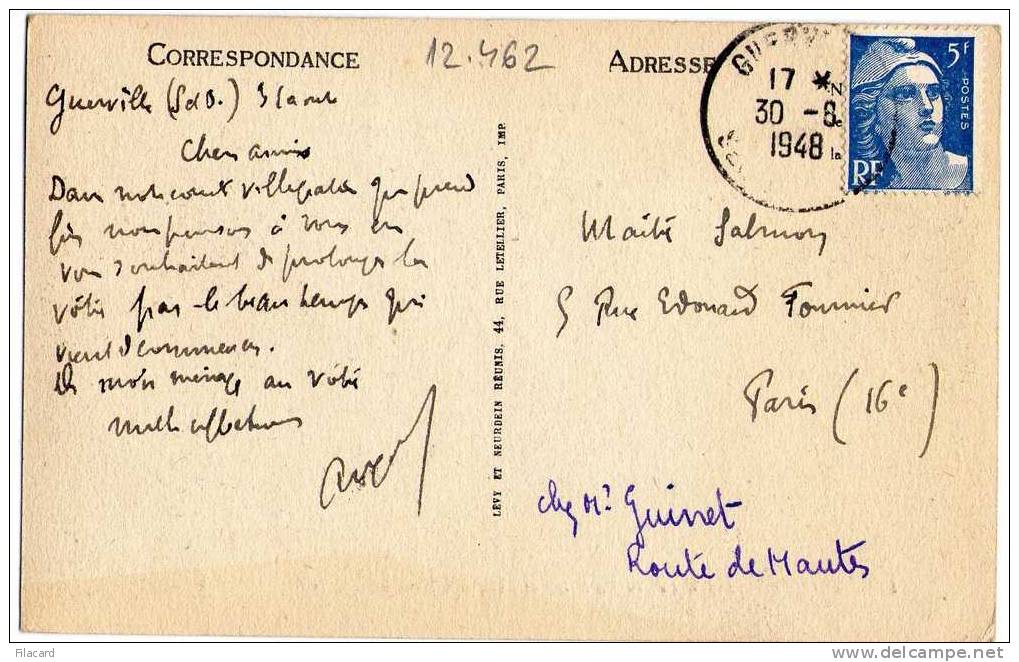 CORRESPONDANCE
12.462
ADRESSE
17
30 - 8
1948
5F
POSTES
RF
Guerville (S d O.) 31 août
Chers amis
Dans notre court villégiature qui prend
fin nous pensons à vous en
vous souhaitant de prolonger la
vôtre par le beau temps qui
vient de commencer.
De mon ménage au vôtre
mille affections
Roger
LÉVY ET NEURDEIN RÉUNIS, 44, RUE LETELLIER, PARIS, IMP.
Maïté Salmon
5 Rue Edouard Fournier
Paris (16e)
chez Mr Guinret
Route de Mantes
Filacard
delcampe.net